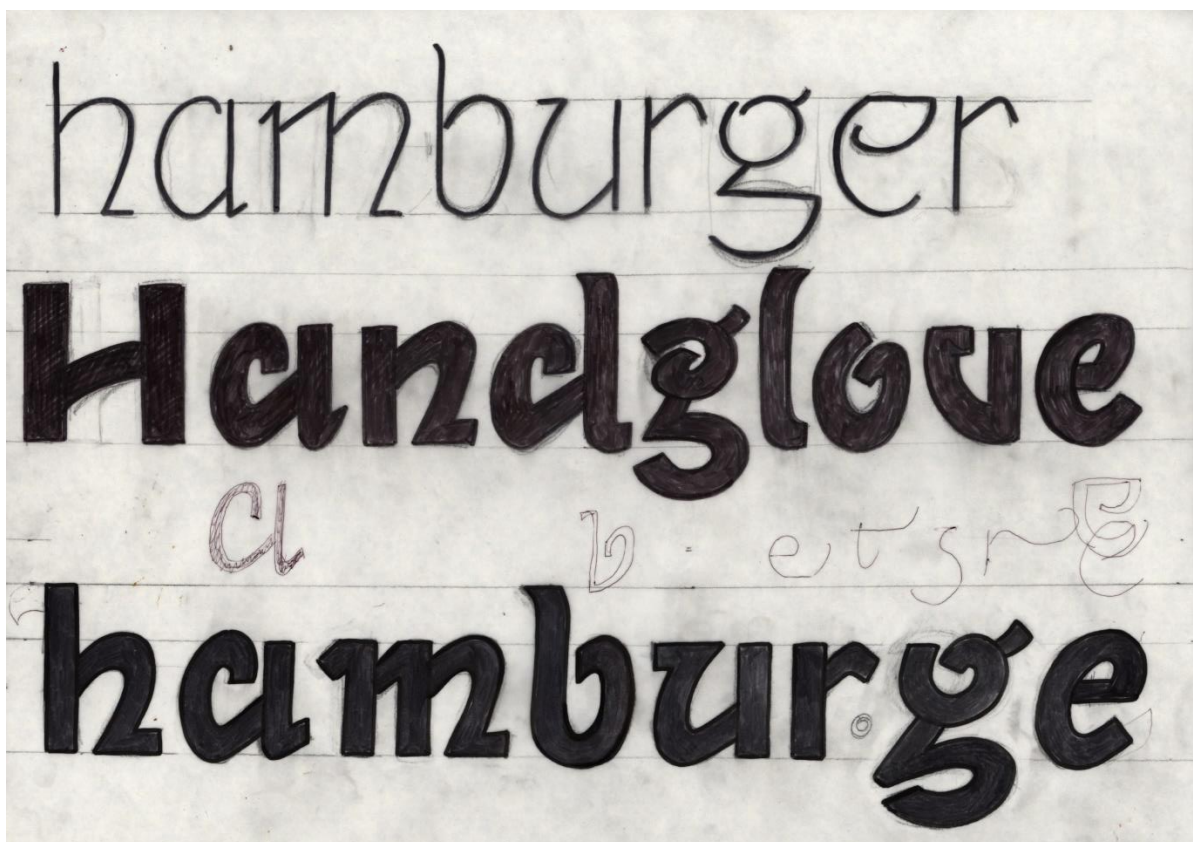 hamburger
Handglove
a b e t g r g
hamburge